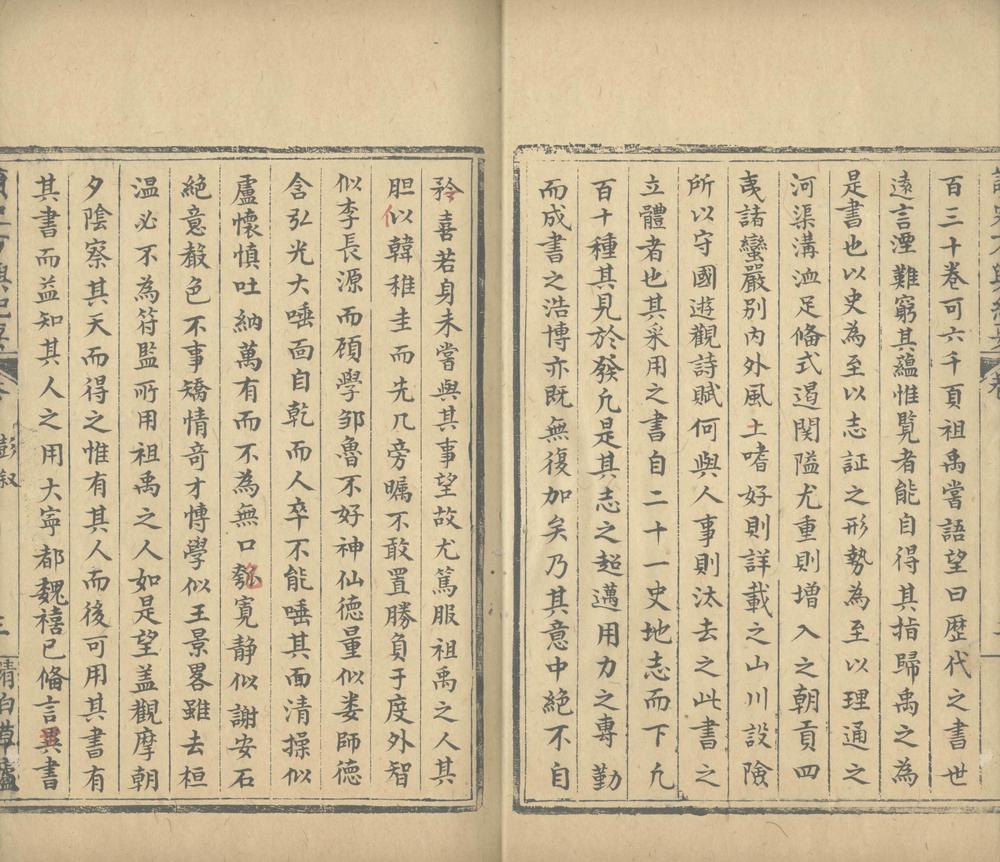 百三十卷可六千頁祖禹嘗語望曰歷代之書世
遠言湮難窮其蘊惟覧者能自得其指歸禹之為
是書也以史為至以志証之形勢為至以理通之
河渠溝洫足俻式遏関隘尤重則增入之朝貢四
夷諸蠻嚴别內外風土嗜好則詳載之山川設險
所以守國遊觀詩賦何與人事則汰去之此書之
立體者也其采用之書自二十一史地志而下凢
百十種其見於發凢是其志之超邁用力之專勤
而成書之浩博亦既無復加矣乃其意中絕不自
矜喜若身未嘗與其事望故尤篤服祖禹之人其
胆似韓稚圭而先几旁矚不敢置勝負于度外智
似李長源而顧學邹魯不好神仙德量似娄師德
含弘光大唾面自乾而人卒不能唾其面清操似
盧懷慎吐納萬有而不為無口匏寛静似謝安石
絕意聲色不事矯情奇才博學似王景畧雖去桓
温必不為符監所用祖禹之人如是望盖觀摩朝
夕陰察其天而得之惟有其人而後可用其書有
其書而益知其人之用大寜都魏禧已俻言異書
彭叙
三